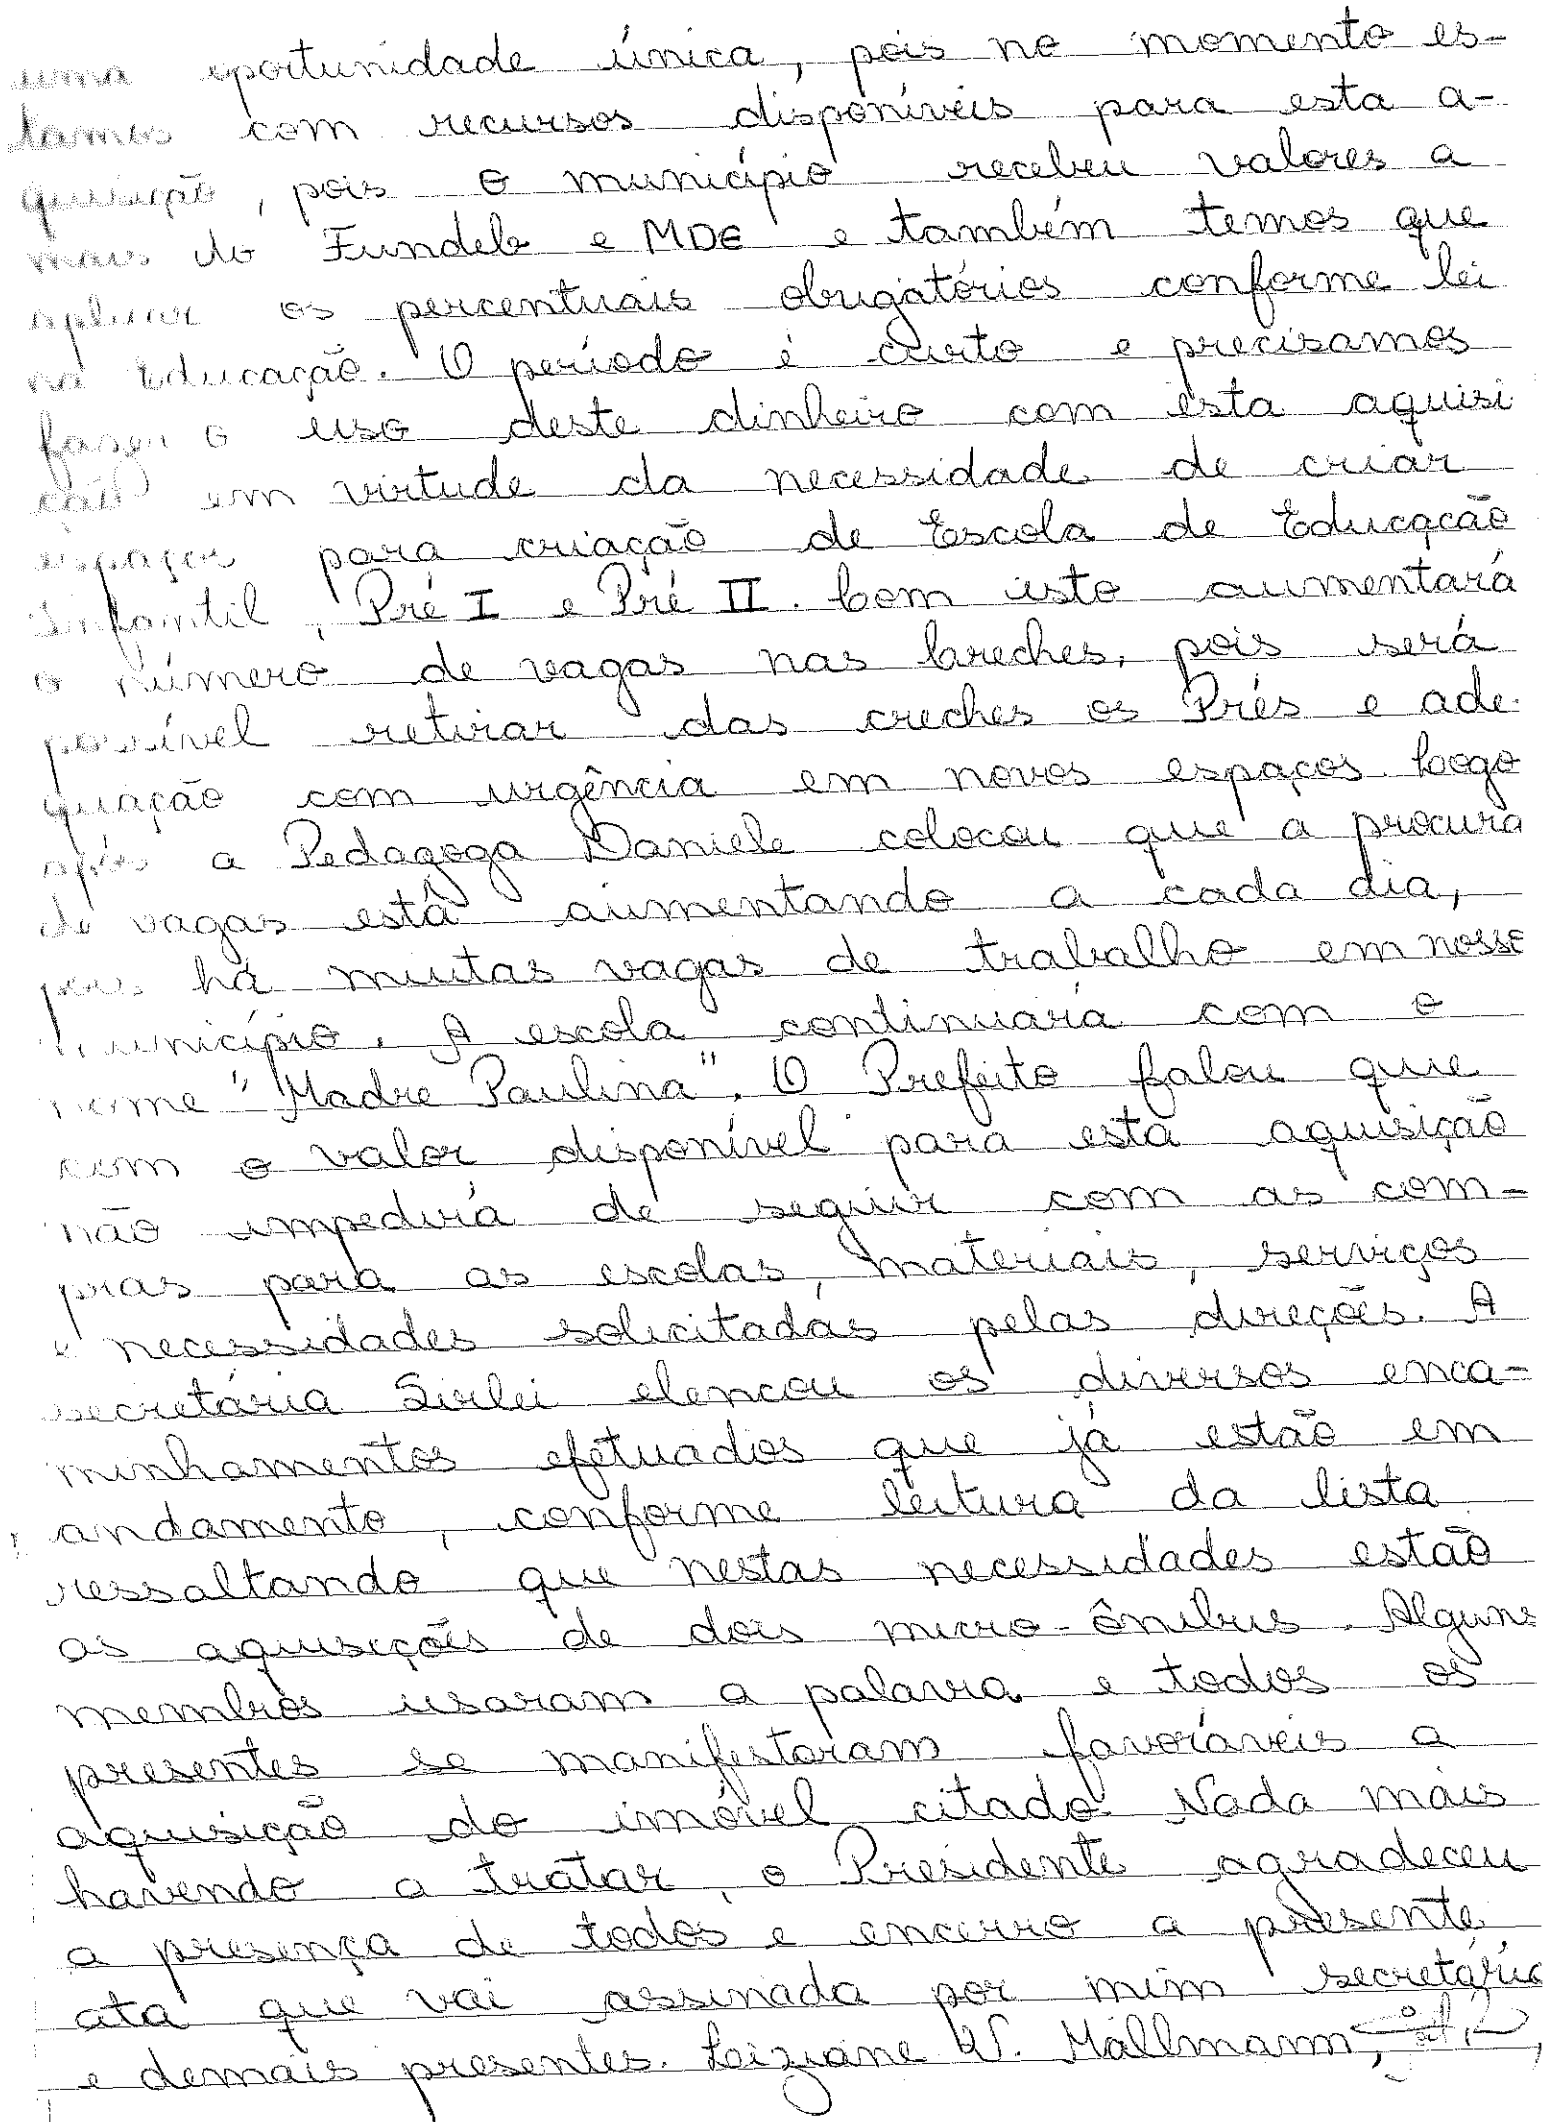 uma oportunidade única, pois no momento es-
tamos com recursos disponíveis para esta a-
quisição, pois o município recebeu valores a
mais do Fundeb e MDE e também temos que
aplicar os percentuais obrigatórios conforme lei
na Educação. O período é curto e precisamos
fazer o uso deste dinheiro com esta aquisi
ção em virtude da necessidade de criar
espaços para criação de Escola de Educação
Infantil, Pré I e Pré II. Com isto aumentará
o número de vagas nas Creches, pois será
possível retirar das creches os Prés e ade-
quação com urgência em novos espaços. Logo
após a Pedagoga Daniele colocou que a procura
de vagas está aumentando a cada dia,
pois há muitas vagas de trabalho em nosso
município. A escola continuará com o
nome "Madre Paulina". O Prefeito falou que
com o valor disponível para esta aquisição
não impedirá de seguir com as com-
pras para as escolas, materiais, serviços
e necessidades solicitadas pelas direções. A
secretária Sirlei elencou os diversos enca-
minhamentos efetuados que já estão em
andamento, conforme leitura da lista
ressaltando que nestas necessidades estão
as aquisições de dois micro-ônibus. Alguns
membros usaram a palavra e todos os
presentes se manifestaram favoráveis a
aquisição do imóvel citado. Nada mais
havendo a tratar, o Presidente agradeceu
a presença de todos e encerro a presente
ata que vai assinada por mim secretária
e demais presentes. Loiziane W. Mallmann,